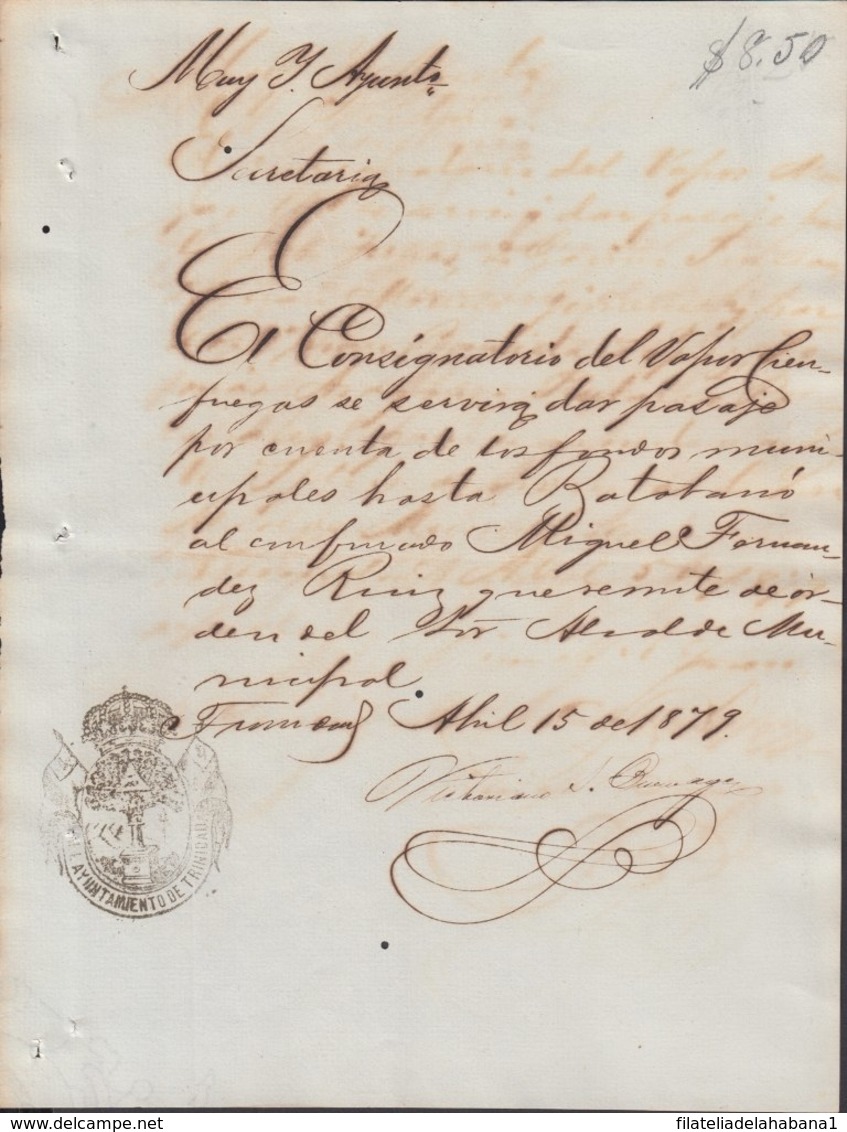 $8.50
Muy Y. Ayunto
Secretaria
El Consignatorio del Vapor Cien-
fuegos se servirá dar pasaje
por cuenta de los fondos muni-
cipales hasta Batabanó
al confinado Miguel Fernan-
dez Ruiz que remite de ór-
den del Sor Alcalde Mu-
nicipal
Trinidad Abril 15 de 1879.
M. I. AYUNTAMIENTO DE TRINIDAD
filateliadelahabana1